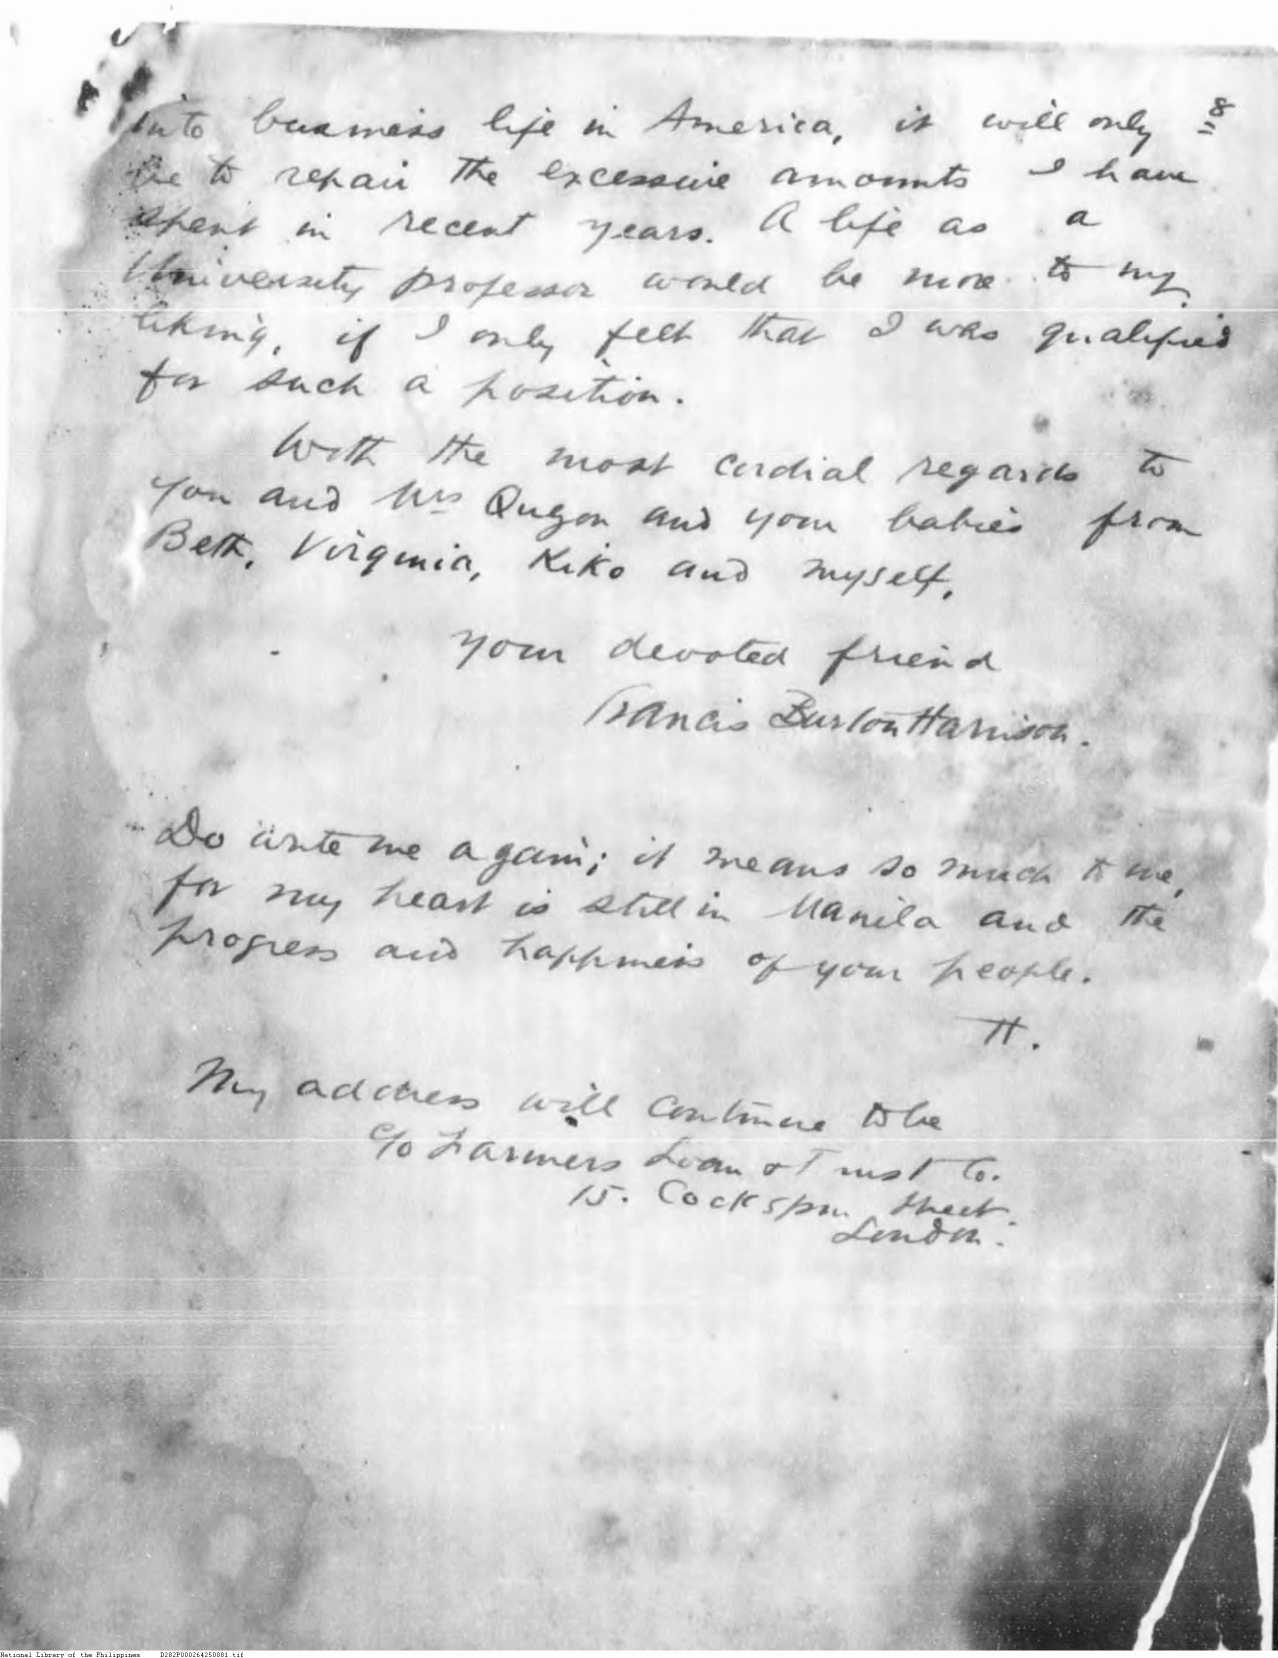 8
into business life in America, it will only
be to repair the excessive amounts I have
spent in recent years. A life as a
University professor would be more to my
liking, if I only felt that I was qualified
for such a position.
With the most cordial regards to
you and Mrs Quezon and your babies from
Beth, Virginia, Kiko and myself.
Your devoted friend
Francis Burton Harrison.
Do write me again; it means so much to me,
for my heart is still in Manila and the
progress and happiness of your people.
H.
My address will continue to be
c/o Farmers Loan & Trust Co.
15. Cockspur Street.
London.
National Library of the Philippines D282P000264250081.tif